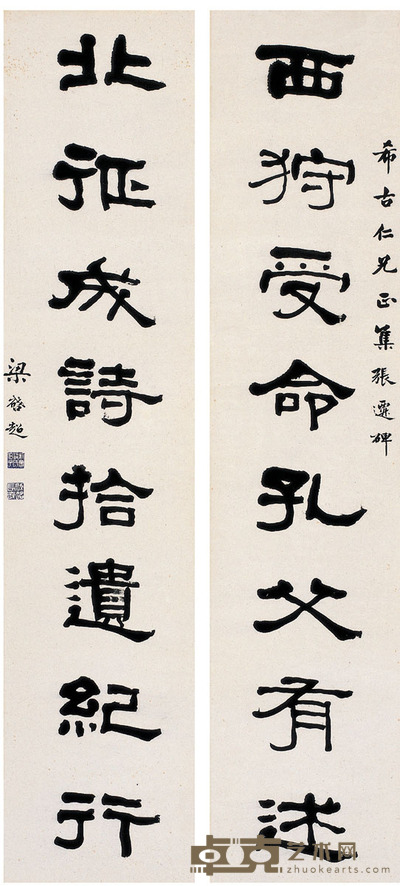 希古仁兄正集張遷碑
西狩受命孔父有述
北征成詩拾遺紀行
梁啓超
卓克艺术网
zhuokearts.com